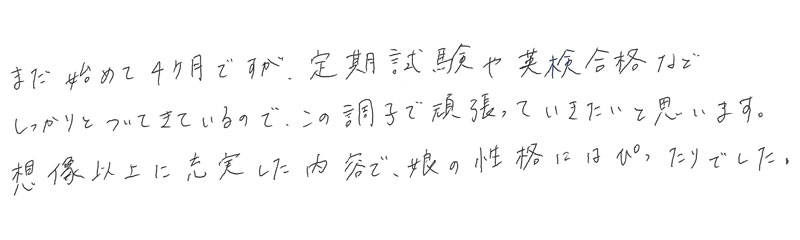 まだ始めて4ヶ月ですが、定期試験や英検合格など
しっかりとついてきているので、この調子で頑張っていきたいと思います。
想像以上に充実した内容で、娘の性格にはぴったりでした。